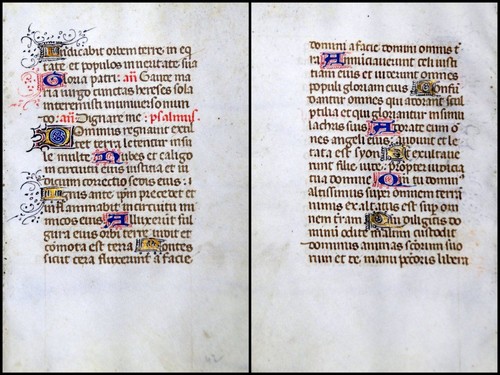 Iudicabit orbem terre in eq
tate et populos in ueritate sua
Gloria patri. añ Gaude ma
ria uirgo cunctas hereses sola
interemisti in uniuerso mun
do. añ Dignare me. psalmus.
Dominus regnauit exul
tet terra letentur insu
le multe Nubes et caligo
in circuitu eius iusticia et iu
dicium correctio sedis eius
Ignis ante ipm precedet et
inflamabit in circuitu ini
micos eius Alluxerunt ful
gura eius orbi terre uidit et
comota est terra Montes
sicut cera fluxerunt a facie
domini a facie domini omnis t̄
ra Annunciauerunt celi iusti
tiam eius et uiderunt omnes
populi gloriam eius Confu
dantur omnes qui adorant scul
ptilia et qui gloriantur in simu
lachris suis Adorate eum o
mnes angeli eius audiuit et le
tata est syon Et exultaue
runt filie iude propter iudicia
tua domine Quoniam tu dominus
altissimus super omnem terram
nimis exaltatus est sup omnes
deos Qui diligitis do
minum odite malum custodit
dominus animas sctorum suo
rum et de manu pctoris liberabit